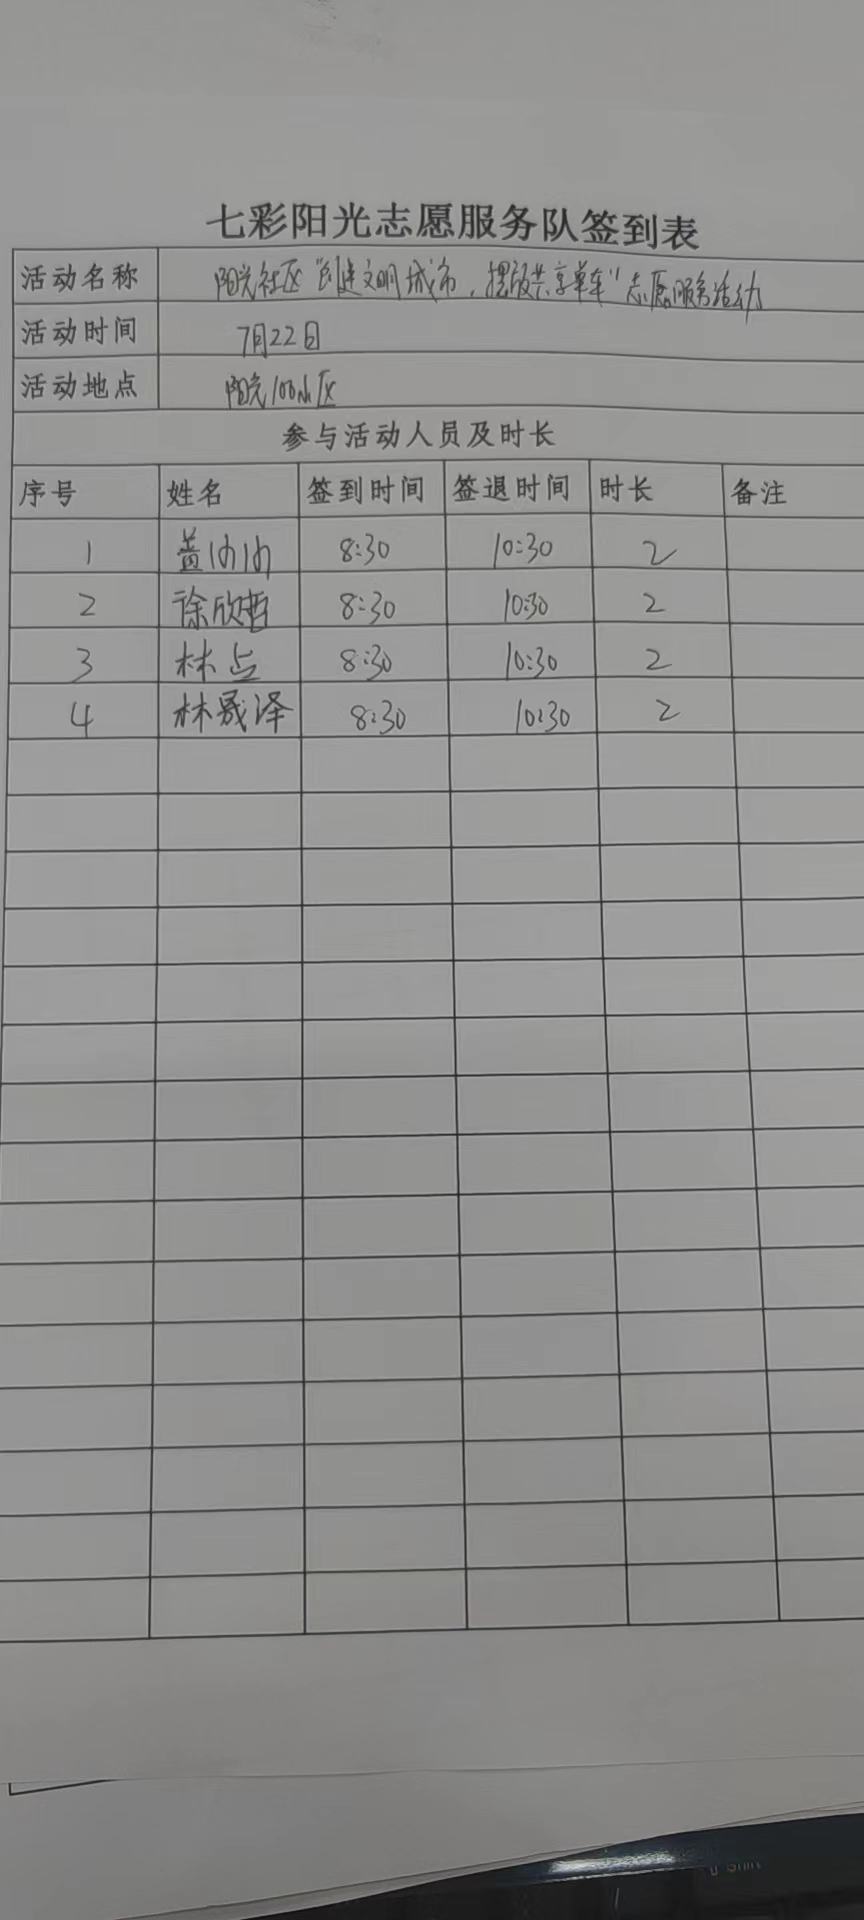 七彩阳光志愿服务队签到表
活动名称 阳光社区"创建文明城市,摆放共享单车"志愿服务活动
活动时间 7月22日
活动地点 阳光100小区
参与活动人员及时长
序号 姓名 签到时间 签退时间 时长 备注
1 8:30 10:30 2
2 徐欣哲 8:30 10:30 2
3 林 8:30 10:30 2
4 林晟泽 8:30 10:30 2
Shift